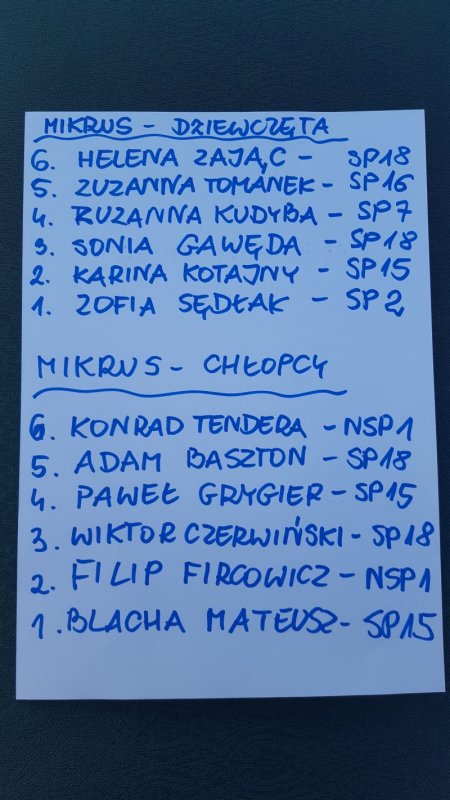 MIKRUS - DZIEWCZĘTA
6. HELENA ZAJĄC - SP18
5. ZUZANNA TOMANEK - SP16
4. RUZANNA KUDYBA - SP7
3. SONIA GAWĘDA - SP18
2. KARINA KOTAJNY - SP15
1. ZOFIA SĘDŁAK - SP2
MIKRUS - CHŁOPCY
6. KONRAD TENDERA - NSP1
5. ADAM BASZTON - SP18
4. PAWEŁ GRYGIER - SP15
3. WIKTOR CZERWIŃSKI - SP18
2. FILIP FIRCOWICZ - NSP1
1. BLACHA MATEUSZ - SP15